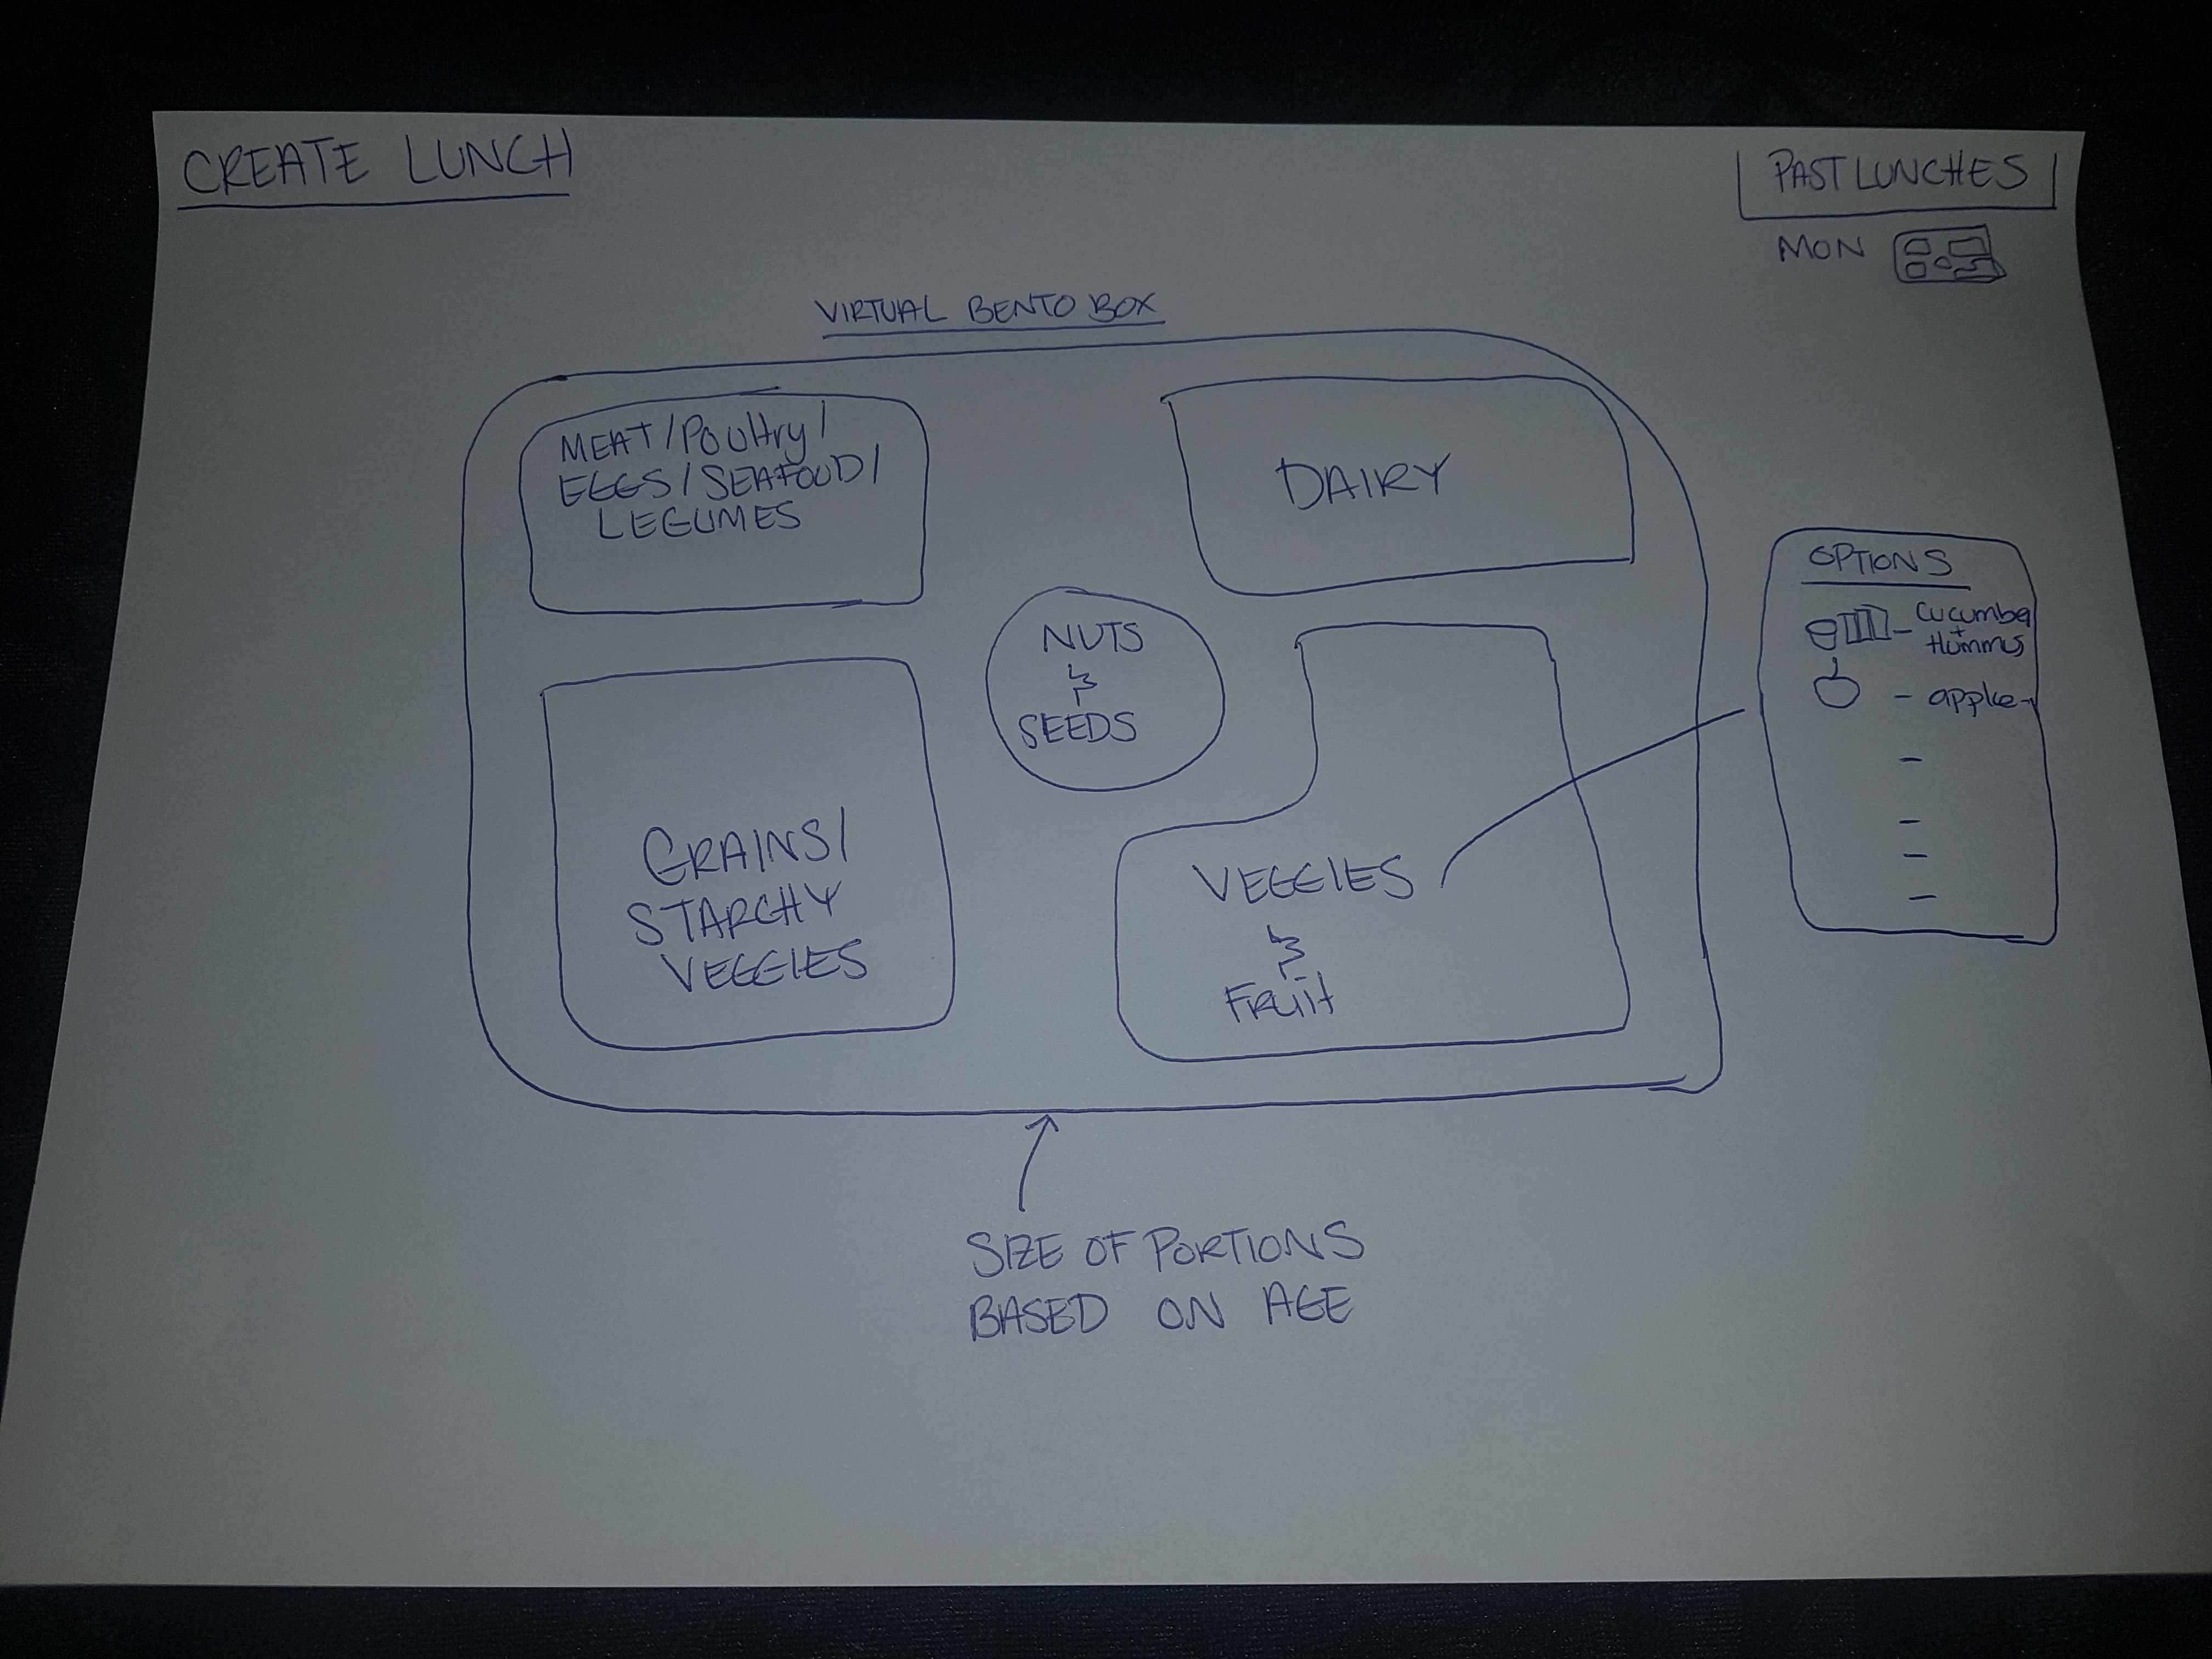 CREATE LUNCH
PAST LUNCHES
MON
VIRTUAL BENTO BOX
MEAT/Poultry/
EGGS/SEAFOOD/
LEGUMES
DAIRY
NUTS
&
SEEDS
GRAINS/
STARCHY
VEGGIES
VEGGIES
&
Fruit
OPTIONS
- Cucumber
+
Hummus
- apple
-
-
-
-
SIZE OF PORTIONS
BASED ON AGE